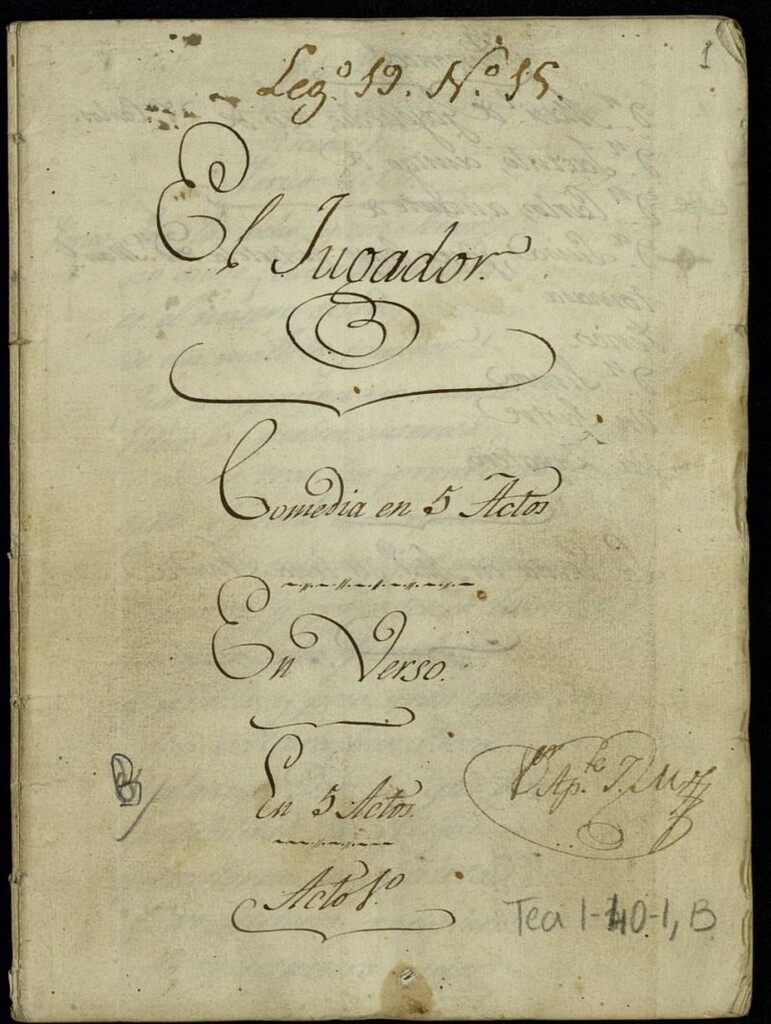 1
Leg.º 19. N.º 15.
El Jugador.
Comedia en 5 Actos
En Verso.
En 5 Actos.
B
Ap.te
Acto 1.º
Tea 1-40-1, B